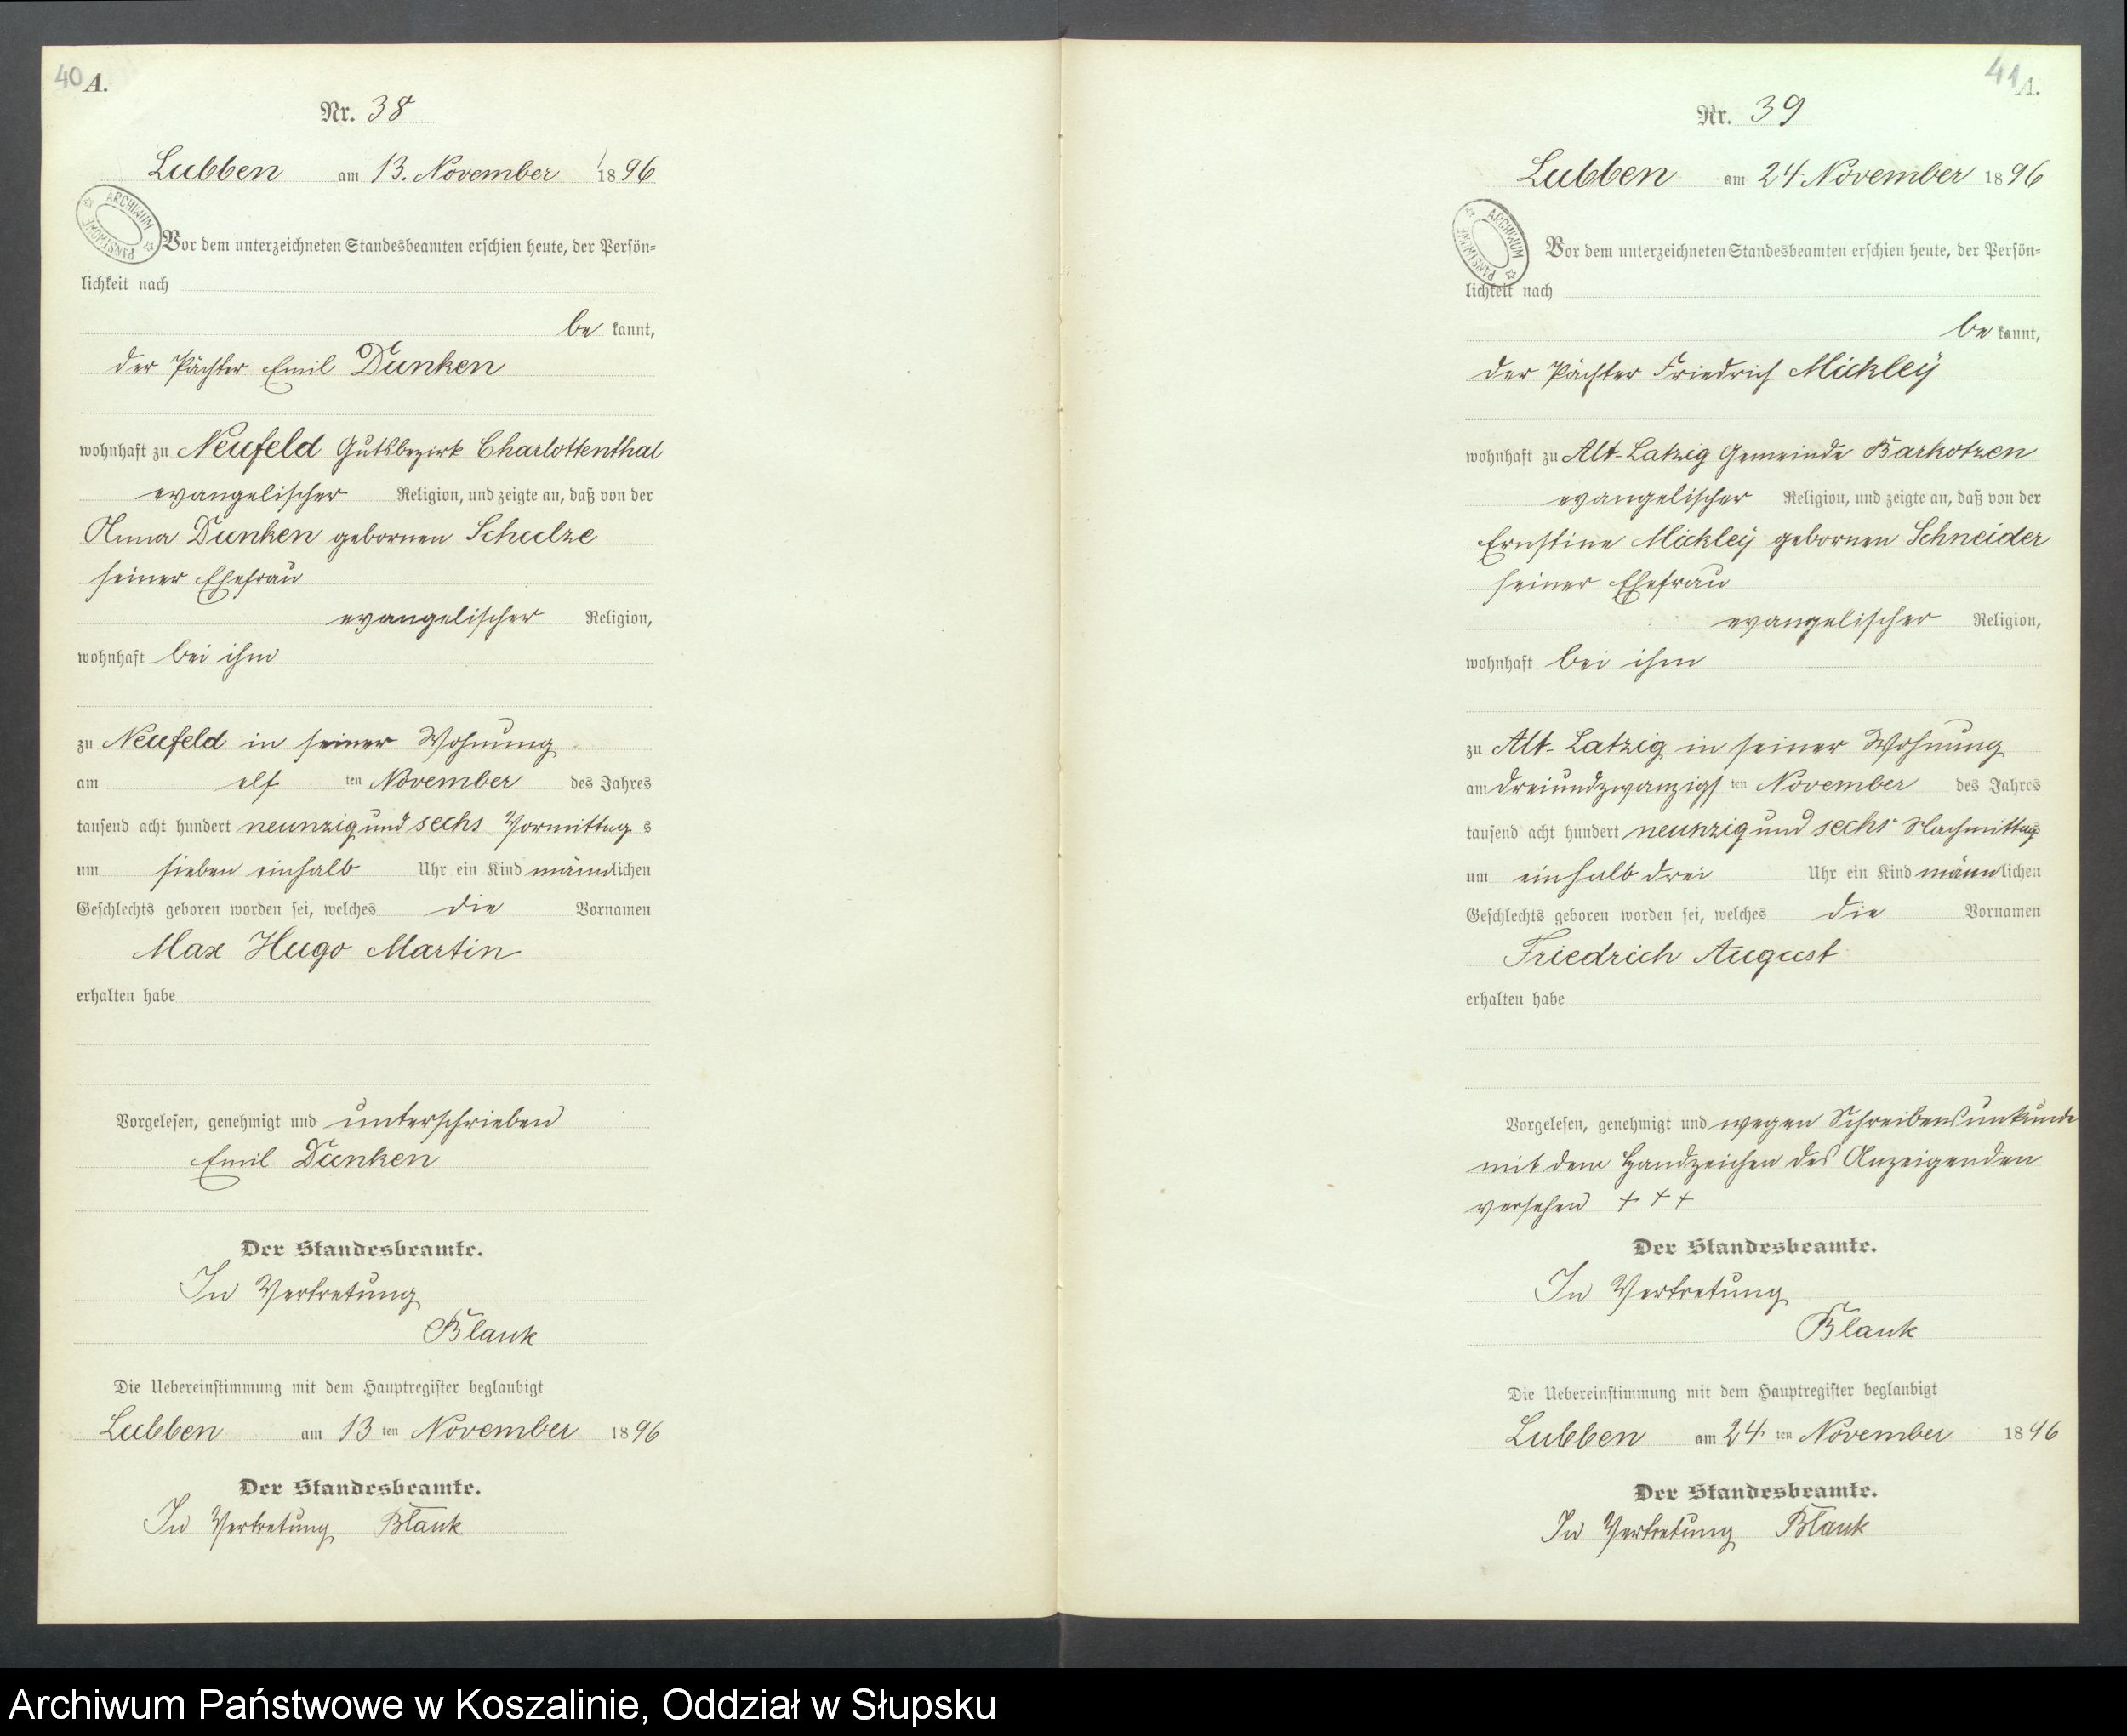 40 A.
Nr. 38
Lubben am 13. November 1896
ARCHIWUM PAŃSTWOWE
Vor dem unterzeichneten Standesbeamten erschien heute, der Persön=
lichkeit nach
be kannt,
der Pächter Emil Dunken
wohnhaft zu Neufeld Gutsbezirk Charlottenthal
evangelischer Religion, und zeigte an, daß von der
Anna Dunken gebornen Schulze
seiner Ehefrau
evangelischer Religion,
wohnhaft bei ihm
zu Neufeld in seiner Wohnung
am elf ten November des Jahres
tausend acht hundert neunzig und sechs Vormittag s
um sieben einhalb Uhr ein Kind männlichen
Geschlechts geboren worden sei, welches die Vornamen
Max Hugo Martin
erhalten habe
Vorgelesen, genehmigt und unterschrieben
Emil Dunken
Der Standesbeamte.
In Vertretung
Blank
Die Uebereinstimmung mit dem Hauptregister beglaubigt
Lubben am 13 ten November 1896
Der Standesbeamte.
In Vertretung Blank
41 A.
Nr. 39
Lubben am 24 November 1896
ARCHIWUM PAŃSTWOWE
Vor dem unterzeichneten Standesbeamten erschien heute, der Persön=
lichkeit nach
be kannt,
der Pächter Friedrich Mickley
wohnhaft zu Alt-Latzig Gemeinde Barkotzen
evangelischer Religion, und zeigte an, daß von der
Ernstine Mickley gebornen Schneider
seiner Ehefrau
evangelischer Religion,
wohnhaft bei ihm
zu Alt-Latzig in seiner Wohnung
am dreiundzwanzigs ten November des Jahres
tausend acht hundert neunzig und sechs Nachmittags
um einhalb drei Uhr ein Kind männlichen
Geschlechts geboren worden sei, welches die Vornamen
Friedrich August
erhalten habe
Vorgelesen, genehmigt und wegen Schreibensunkunde
mit dem Handzeichen des Anzeigenden
versehen + + +
Der Standesbeamte.
In Vertretung
Blank
Die Uebereinstimmung mit dem Hauptregister beglaubigt
Lubben am 24 ten November 1896
Der Standesbeamte.
In Vertretung Blank
Archiwum Państwowe w Koszalinie, Oddział w Słupsku